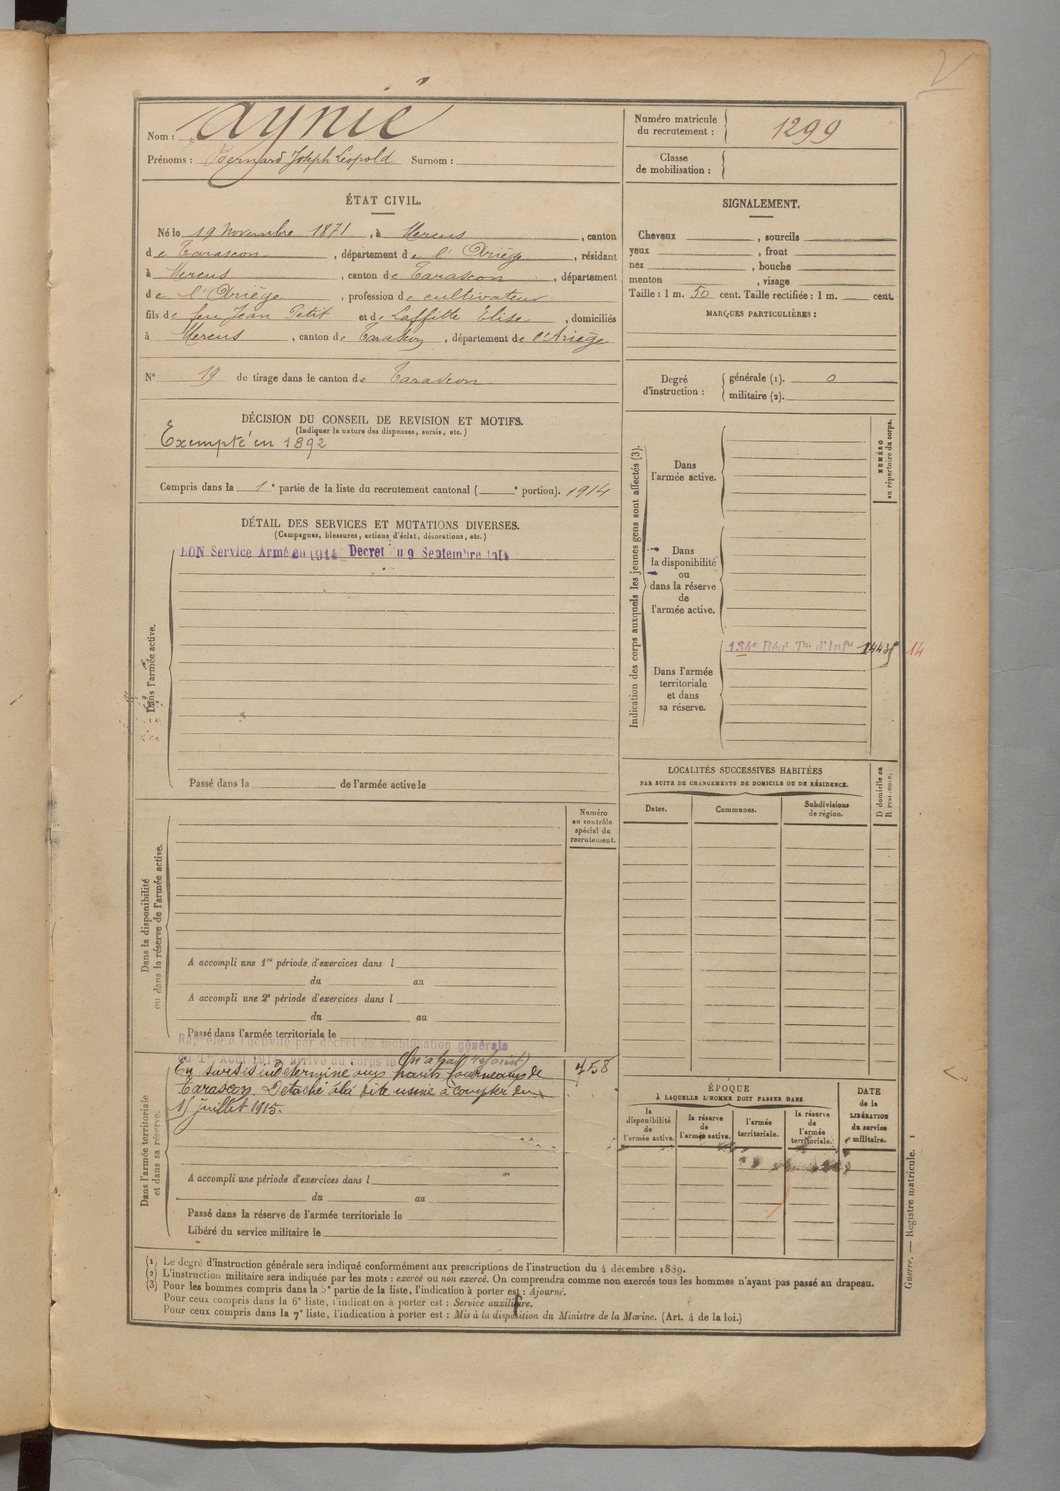 Nom : Aynié
Prénoms : Bernard Joseph Léopold Surnom :
Numéro matricule du recrutement : 1299
Classe de mobilisation :
ÉTAT CIVIL.
Né le 19 novembre 1871, à Mercus, canton
de Tarascon, département de l'Ariège, résidant
à Mercus, canton de Tarascon, département
de l'Ariège, profession de cultivateur
fils de feu Jean Petit et de Laffitte Elise, domiciliés
à Mercus, canton de Tarascon, département de l'Ariège
N° 19 de tirage dans le canton de Tarascon
SIGNALEMENT.
Cheveux , sourcils
yeux , front
nez , bouche
menton , visage
Taille : 1 m. 50 cent. Taille rectifiée : 1 m. cent.
MARQUES PARTICULIÈRES :
Degré d'instruction :
générale (1). 0
militaire (2).
DÉCISION DU CONSEIL DE REVISION ET MOTIFS.
(Indiquer la nature des dispenses, sursis, etc.)
Exempté en 1892
Compris dans la 1e partie de la liste du recrutement cantonal ( e portion). 1914
DÉTAIL DES SERVICES ET MUTATIONS DIVERSES.
(Campagnes, blessures, actions d'éclat, décorations, etc.)
BON Service Armé en 1914 Décret du 9 Septembre 1914
Dans l'armée active.
Passé dans la de l'armée active le
Indication des corps auxquels les jeunes gens sont affectés (3).
NUMÉRO
au répertoire du corps.
Dans
l'armée active.
Dans
la disponibilité
ou
dans la réserve
de
l'armée active.
Dans l'armée
territoriale
et dans
sa réserve.
134e Régt Tal d'Infie 14435 14
LOCALITÉS SUCCESSIVES HABITÉES
PAR SUITE DE CHANGEMENTS DE DOMICILE OU DE RÉSIDENCE.
Dates.
Communes.
Subdivisions
de région.
D domicile ou
R résidence.
Numéro
au contrôle
spécial du
recrutement.
Dans la disponibilité
ou dans la réserve de l'armée active.
A accompli une 1re période d'exercices dans l
du au
A accompli une 2e période d'exercices dans l
du au
Passé dans l'armée territoriale le
Rappelé à l'activité par décret de mobilisation générale
du 1er Août 1914, arrivé au corps le (N'a pas rejoint)
En sursis indéterminé aux hauts fourneaux de
Tarascon. Détaché à la dite usine à compter du
1er juillet 1915.
758
Dans l'armée territoriale
et dans sa réserve.
A accompli une période d'exercices dans l
du au
Passé dans la réserve de l'armée territoriale le
Libéré du service militaire le
ÉPOQUE
À LAQUELLE L'HOMME DOIT PASSER DANS
la
disponibilité
de
l'armée active.
la réserve
de
l'armée active.
l'armée
territoriale.
la réserve
de
l'armée
territoriale.
DATE
de la
LIBÉRATION
du service
militaire.
(1) Le degré d'instruction générale sera indiqué conformément aux prescriptions de l'instruction du 4 décembre 1889.
(2) L'instruction militaire sera indiquée par les mots : exercé ou non exercé. On comprendra comme non exercés tous les hommes n'ayant pas passé au drapeau.
(3) Pour les hommes compris dans la 5e partie de la liste, l'indication à porter est : Ajourné.
Pour ceux compris dans la 6e liste, l'indication à porter est : Service auxiliaire.
Pour ceux compris dans la 7e liste, l'indication à porter est : Mis à la disposition du Ministre de la Marine. (Art. 4 de la loi.)
Guerre. — Registre matricule. 1